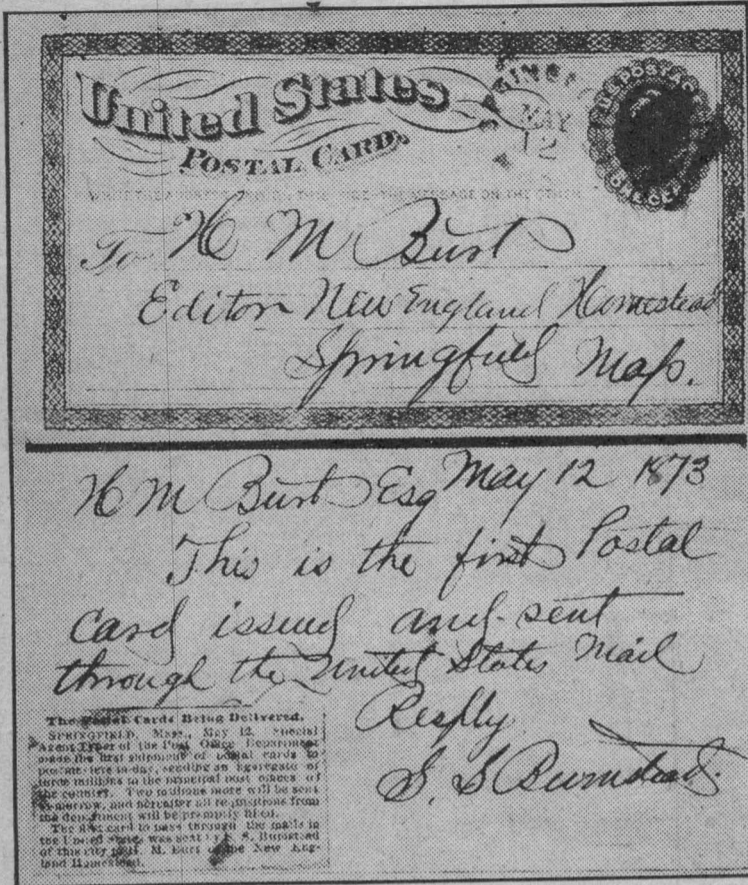 United States
POSTAL CARD.
SPRINGF
MAY
12
U.S. POSTAGE
ONE CENT
WRITE THE ADDRESS ONLY ON THIS SIDE - THE MESSAGE ON THE OTHER
To H M Burt
Editor New England Homestead
Springfield Mass.
H M Burt Esq May 12 1873
This is the first Postal
card issued and sent
through the United States Mail
Resply
S. S Bumstead.
The Postal Cards Being Delivered.
SPRINGFIELD, Mass., May 12. Special
Agent Tyler of the Post Office Department
made the first shipment of postal cards to
postmasters to-day, sending an aggregate of
three millions to the principal post offices of
the country. Two millions more will be sent
to-morrow, and hereafter all requisitions from
the department will be promptly filled.
The first card to pass through the mails in
the United States was sent by S. S. Bumstead
of this city to H. M. Burt of the New Eng-
land Homestead.